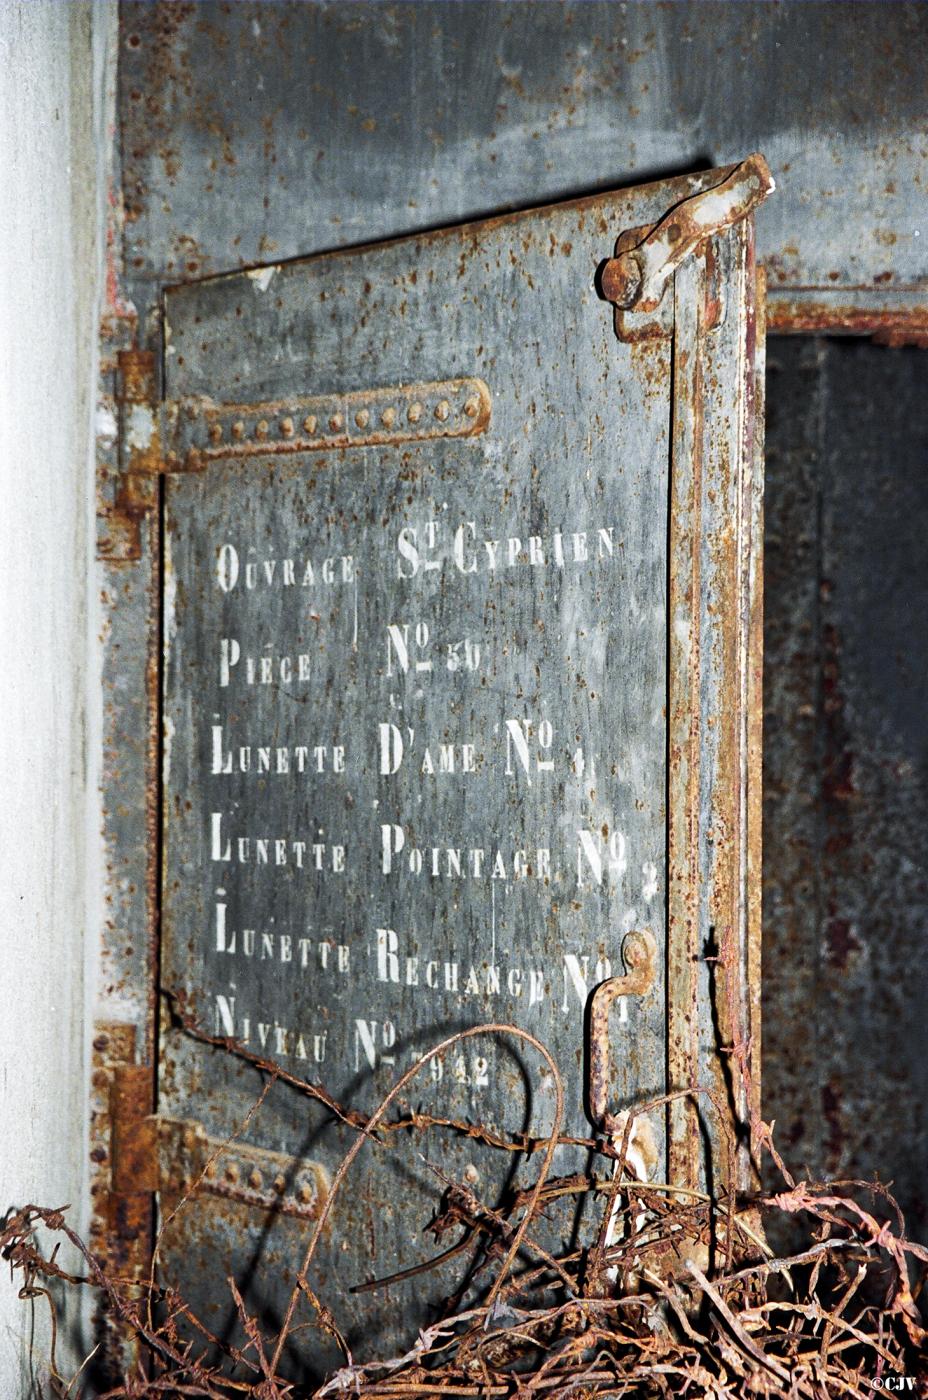 OUVRAGE ST CYPRIEN
PIÈCE No 50
LUNETTE D'AME No 1
LUNETTE POINTAGE No 2
LUNETTE RECHANGE No 1
NIVEAU No 7942
©CJV